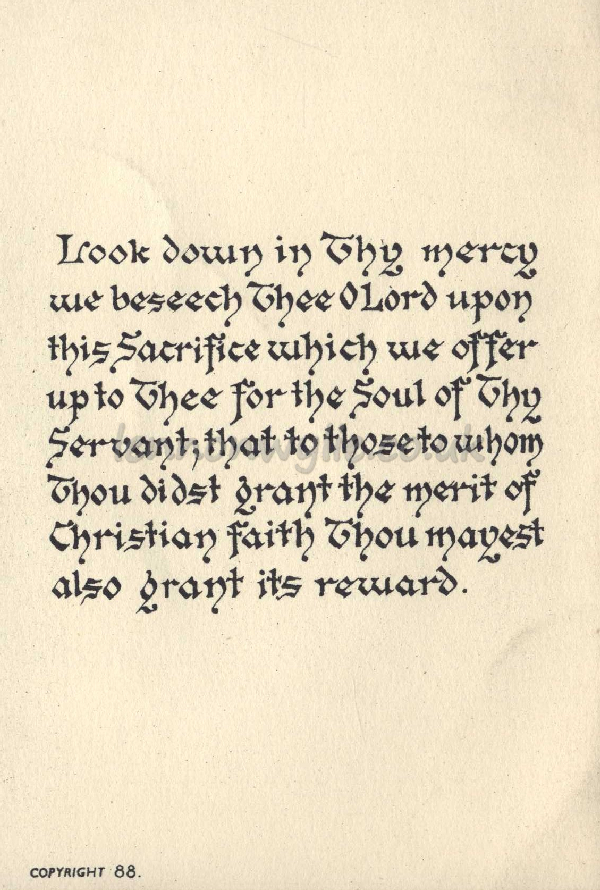 Look down in Thy mercy
we beseech Thee O Lord upon
this Sacrifice which we offer
up to Thee for the Soul of Thy
Servant; that to those to whom
Thou didst grant the merit of
Christian faith Thou mayest
also grant its reward.
COPYRIGHT 88.